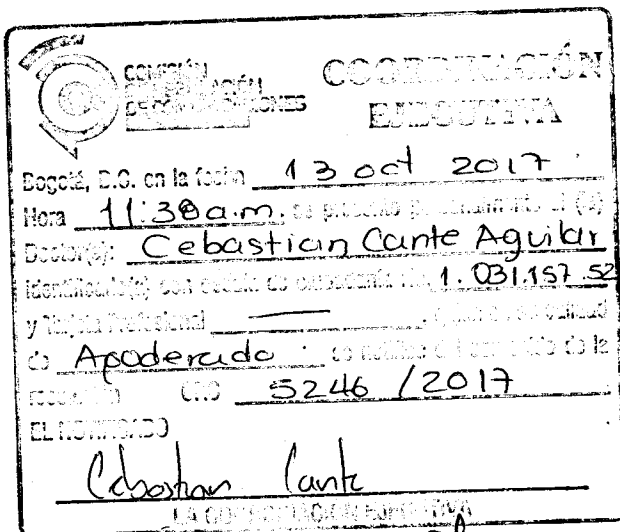 COMISIÓN
DE REGULACIÓN
DE COMUNICACIONES
COORDINACIÓN
EJECUTIVA
Bogotá, D.C. en la fecha 13 oct 2017
Hora 11:38 a.m. se presentó personalmente el (la)
Doctor(a): Cebastian Cante Aguilar
Identificado(a) con cédula de ciudadanía No. 1.031.157.52
y Tarjeta Profesional —— , quien en su calidad
de Apoderado se notifica del contenido de la
resolución CRC 5246 / 2017
EL NOTIFICADO
Cebastian Cante
LA COORDINACIÓN EJECUTIVA